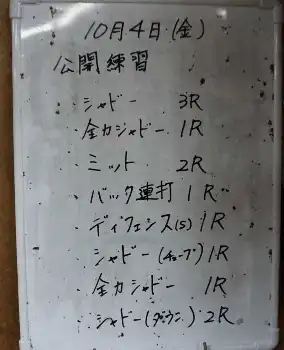 10月4日(金)
公開練習
・シャドー 3R
・全力シャドー 1R
・ミット 2R
・バック連打 1R
・ディフェンス(S) 1R
・シャドー(チューブ) 1R
・全力シャドー 1R
・シャドー(ダウン) 2R